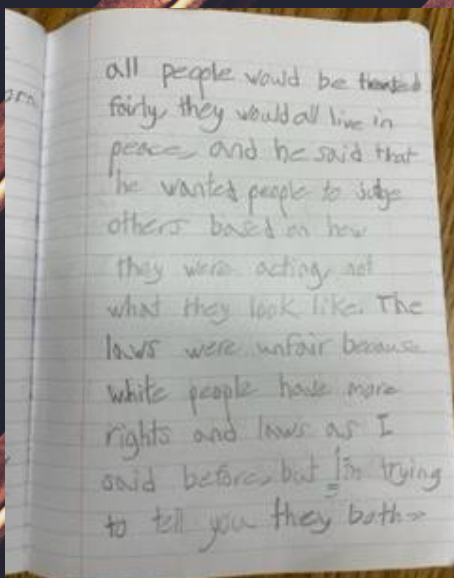 orn
all people would be treated
fairly, they would all live in
peace, and he said that
he wanted people to judge
others based on how
they were acting, not
what they look like. The
laws were unfair because
white people have more
rights and laws as I
said before, but I'm trying
to tell you they both